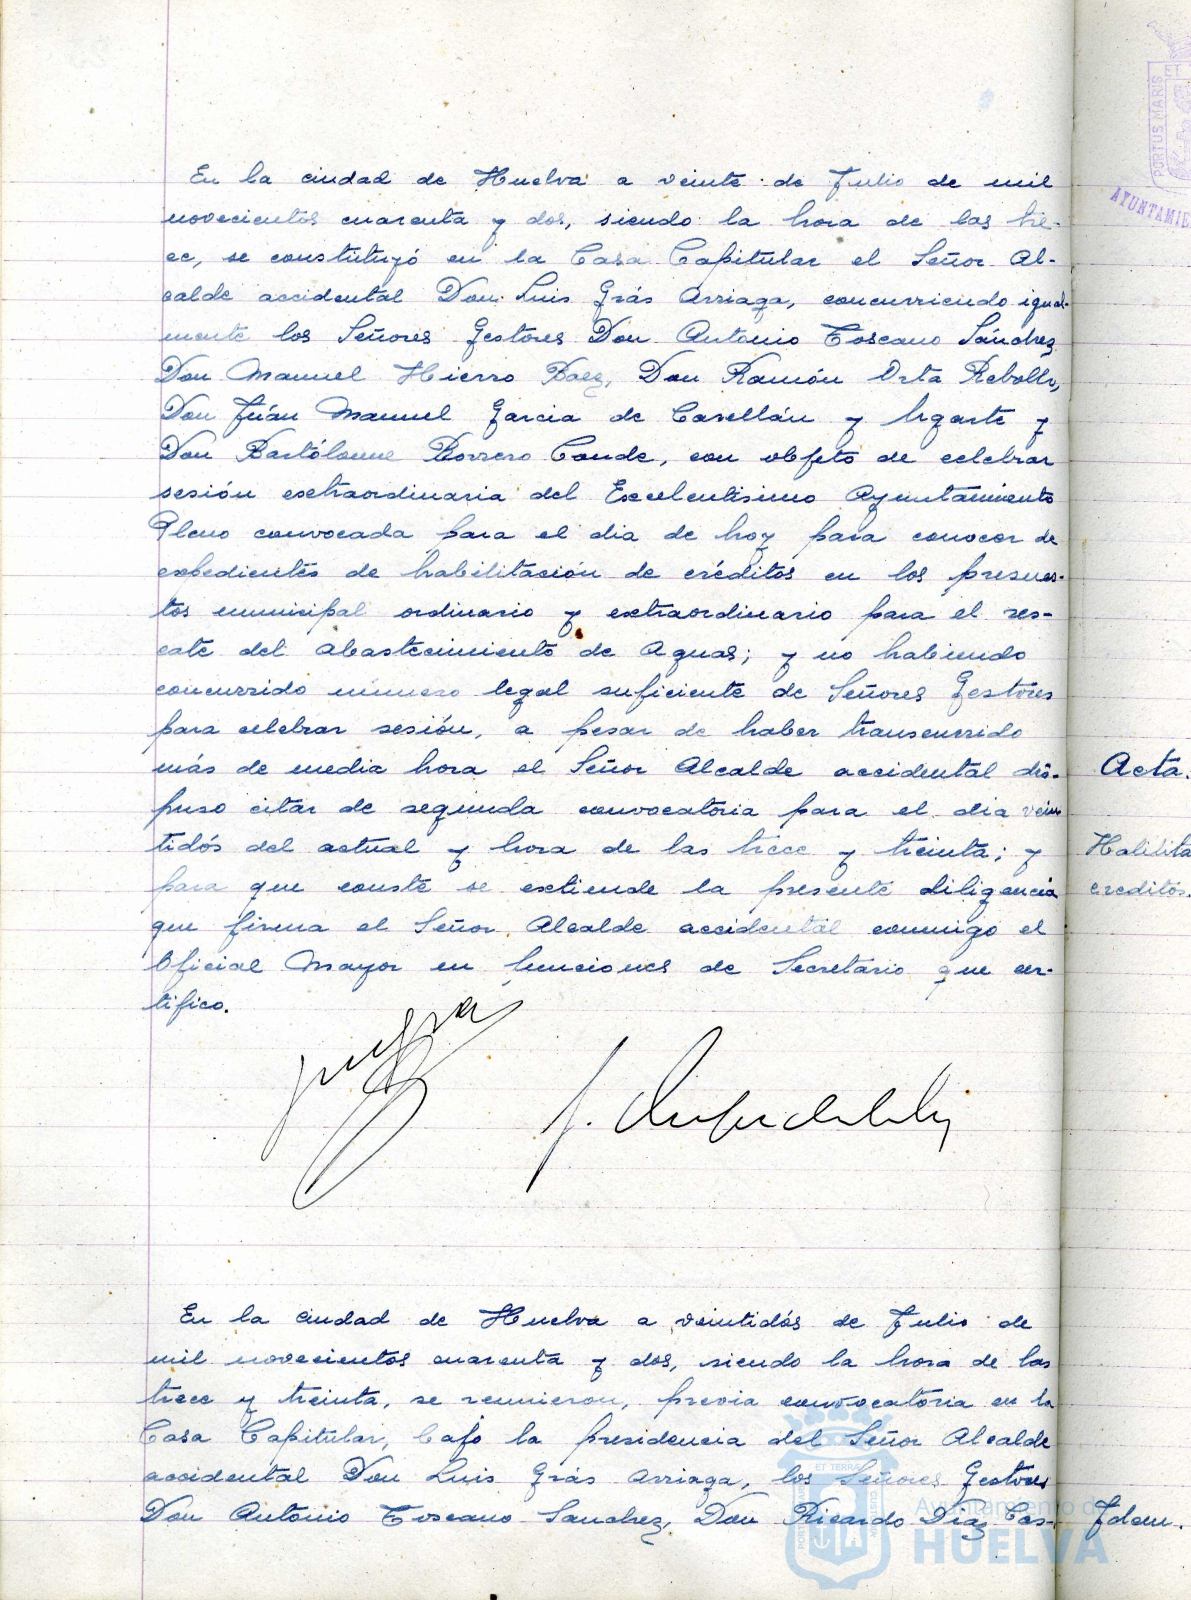 En la ciudad de Huelva a veinte de Julio de mil
novecientos cuarenta y dos, siendo la hora de las tre-
ce, se constituyó en la Casa Capitular el Señor Al-
calde accidental Don Luis Grás Arriaga, concurriendo igual-
mente los Señores Gestores Don Antonio Toscano Sánchez
Don Manuel Hierro Baez, Don Ramón Orta Rebollo,
Don Juán Manuel Garcia de Casellán y Ugarte y
Don Bartólome Borrero Conde, con objeto de celebrar
sesión extraordinaria del Excelentisimo Ayuntamiento
Pleno convocada para el dia de hoy para conocer de
expedientes de habilitación de créditos en los presues-
tos municipal ordinario y extraordinario para el res-
cate del abastecimiento de Aguas; y no habiendo
concurrido número legal suficiente de Señores Gestores
para celebrar sesión, a pesar de haber transcurrido
más de media hora el Señor Alcalde accidental dis-
puso citar de segunda convocatoria para el dia vein
tidós del actual y hora de las trece y treinta; y
para que conste se extiende la presente diligencia
que firma el Señor Alcalde accidental conmigo el
Oficial Mayor en funciones de Secretario que cer-
tifico.
En la ciudad de Huelva a veintidós de Julio de
mil novecientos cuarenta y dos, siendo la hora de las
trece y treinta, se reunieron, previa convocatoria en la
Casa Capitular, bajo la presidencia del Señor Alcalde
accidental Don Luis Grás Arriaga, los Señores Gestores
Don Antonio Toscano Sanchez, Don Ricardo Diaz Cas-
Acta.
Habilita
creditos.
Idem.
PORTUS MARIS
ET
AYUNTAMIE
ET TERRA
Ayuntamiento de
HUELVA